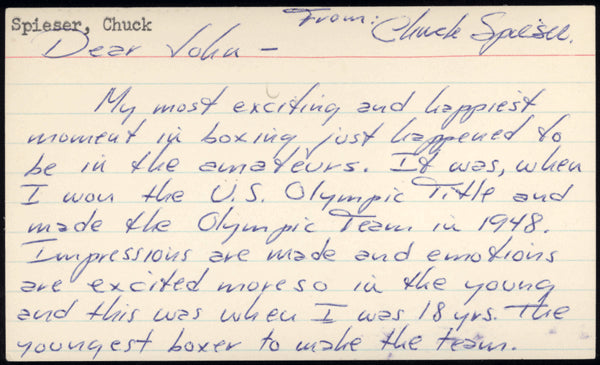 Spieser, Chuck
From: Chuck Spieser.
Dear John -
My most exciting and happiest
moment in boxing just happened to
be in the amateurs. It was, when
I won the U.S. Olympic Title and
made the Olympic Team in 1948.
Impressions are made and emotions
are excited moreso in the young
and this was when I was 18 yrs. The
youngest boxer to make the team.